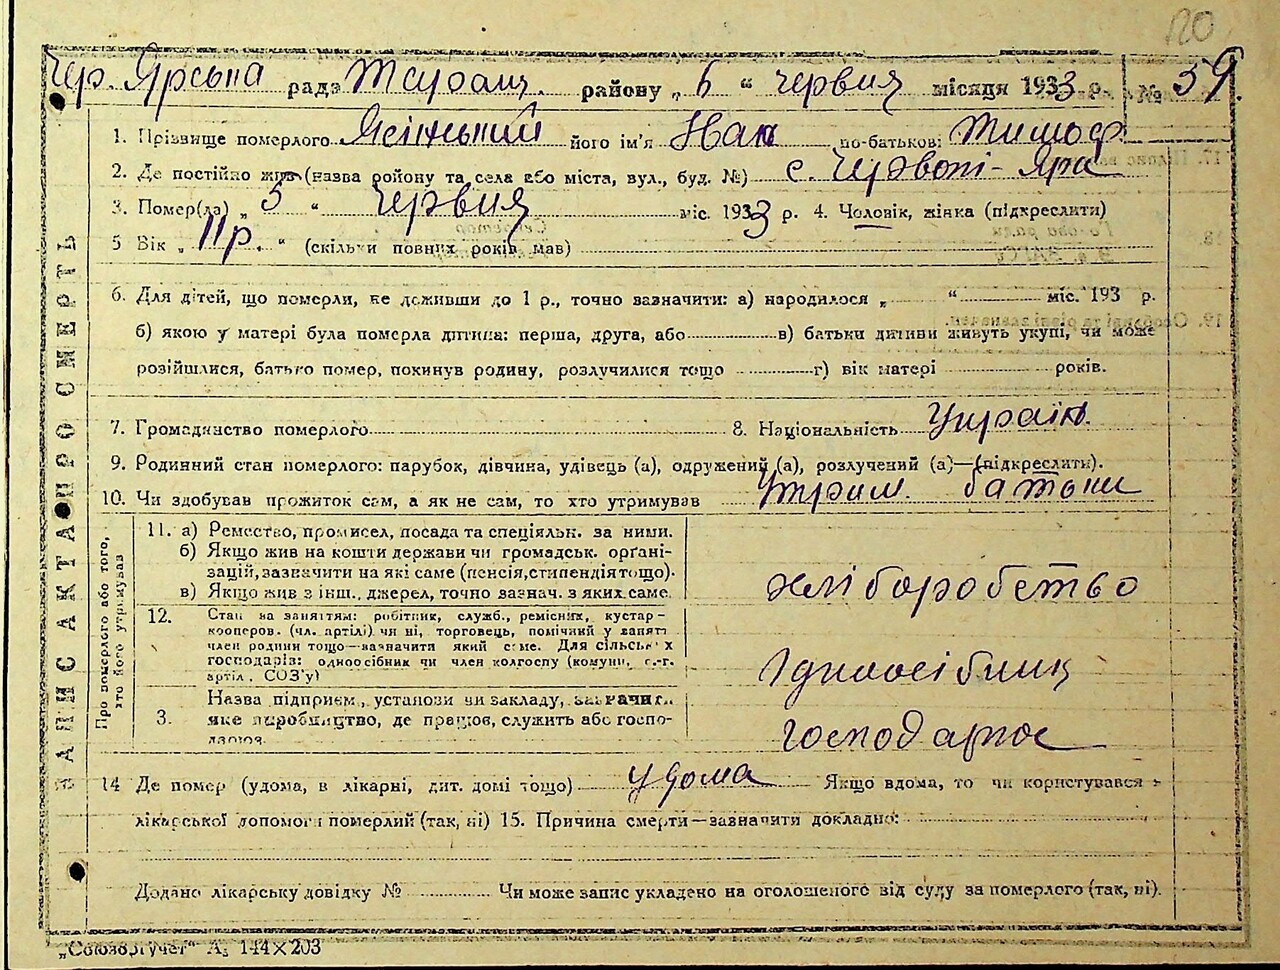 120
Чер. Ярська радэ Жураш. району „ 6 " червня місяця 1933 р. № 59.
1. Прізвище померлого Ясінський його ім'я Іван по-батьков: Тимоф
2. Де постійно жив (назва ройону та села або міста, вул., буд. №) с. Червоні-Яра
3. Помер(ла) „ 5 " Червня міс. 1933 р. 4. Чоловік, жінка (підкреслити)
5 Вік „ 11р. " (скільки повних років мав)
6. Для дітей, що померли, не доживши до 1 р., точно вазначити: а) народилося „ " міс. 193 р.
б) якою у матері була померла дитина: перша, друга, або в) батьки дитини живуть укупі, чи може
розійшлися, батько помер, покинув родину, розлучилися тощо г) вік матері років.
7. Громадянство померлого 8. Національність Україн.
9. Родинний стан померлого: парубок, дівчина, удівець (а), одружений (а), розлучений (а)—(підкреслити).
10. Чи здобував прожиток сам, а як не сам, то хто утримував Утрим. батьки
ЗАПИС АКТА ПРО СМЕРТЬ
Про померлого або того, хто його утримував
11. а) Ремество, промисел, посада та спеціяльн. за ними.
б) Якщо жив на кошти держави чи громадськ. орґані-
зацій, зазначити на які саме (пенсія, стипендія тощо).
в) Якщо жив з інш. джерел, точно зазнач. з яких саме.
хліборобство
12. Стан за занятям: робітник, служб., ремісник, кустар-
кооперов. (чл. артілі) чи ні, торговець, помічний у занят.
член родини тощо—зазначити який саме. Для сільськ х
господарів: одноосібник чи член колгоспу (комуни, с.-г.
артіл. СОЗ'у)
Одноосібник
3. Назва підприєм., установи чи закладу, зазначит.
яке виробництво, де працюв, служить або госпо-
дарює.
господарює
14 Де помер (удома, в лікарні, дит. домі тощо) удома Якщо вдома, то чи користувався
лікарської допомоги померлий (так, ні) 15. Причина смерти—зазначити докладно:
Додано лікарську довідку № Чи може запис укладено на оголошеного від суду за померлого (так, ні).
„Союзоргучет" А₅ 144×203